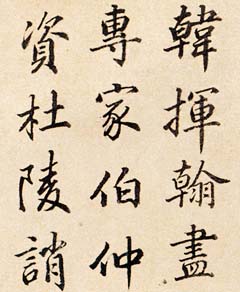 韓揮翰盡
專家伯仲
資杜陵誚